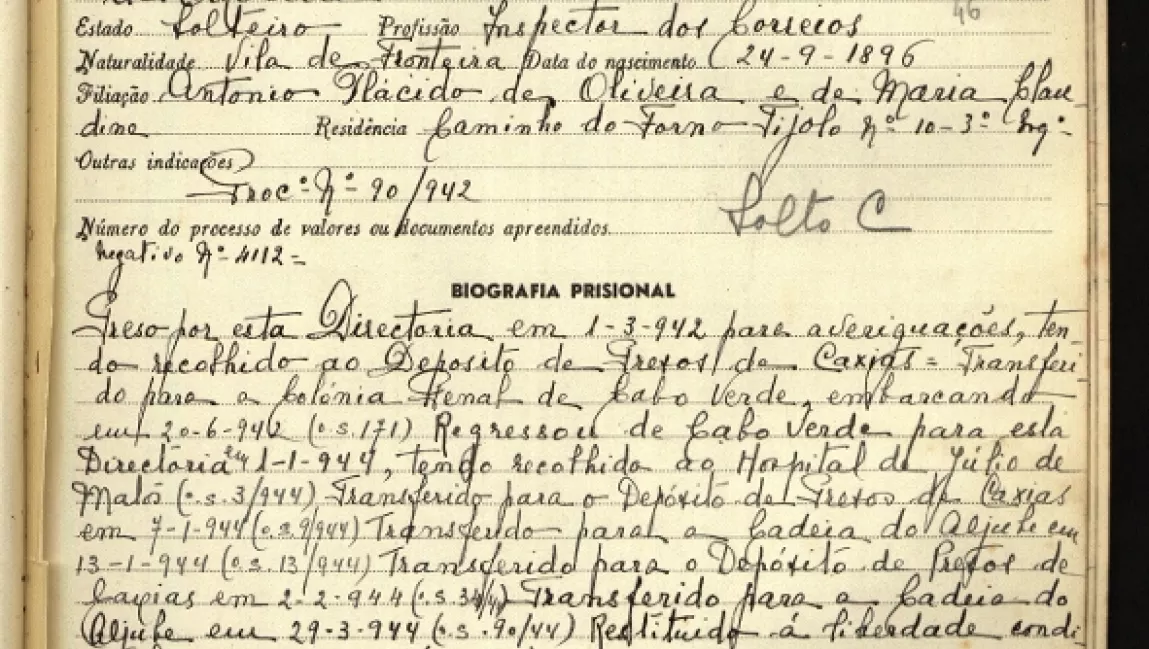 46
Estado Solteiro Profissão Inspector dos Correios
Naturalidade Vila de Fronteira Data do nascimento 24-9-1896
Filiação Antonio Plácido de Oliveira e de Maria Clau-
dina Residência Caminho do Forno Tijolo Nº 10-3º Esqº
Outras indicações
Procº Nº 90/942
Solto C
Número do processo de valores ou documentos apreendidos
Negativo Nº 4112=
BIOGRAFIA PRISIONAL
Preso por esta Directoria em 1-3-942 para averiguações, ten-
do recolhido ao Deposito de Presos de Caxias = Transferi-
do para a Colónia Penal de Cabo Verde, embarcando
em 20-6-942 (o.s. 171) Regressou de Cabo Verde para esta
Directoria em 1-1-944, tendo recolhido ao Hospital de Júlio de
Matos (o.s. 3/944) Transferido para o Depósito de Presos de Caxias
em 7-1-944 (o.s. 9/944) Transferido para a Cadeia do Aljube em
13-1-944 (o.s. 13/944) Transferido para o Depósito de Presos de
Caxias em 2-2-944 (o.s. 34/44) Transferido para a Cadeia do
Aljube em 29-3-944 (o.s. 90/44) Restituido á liberdade condi-